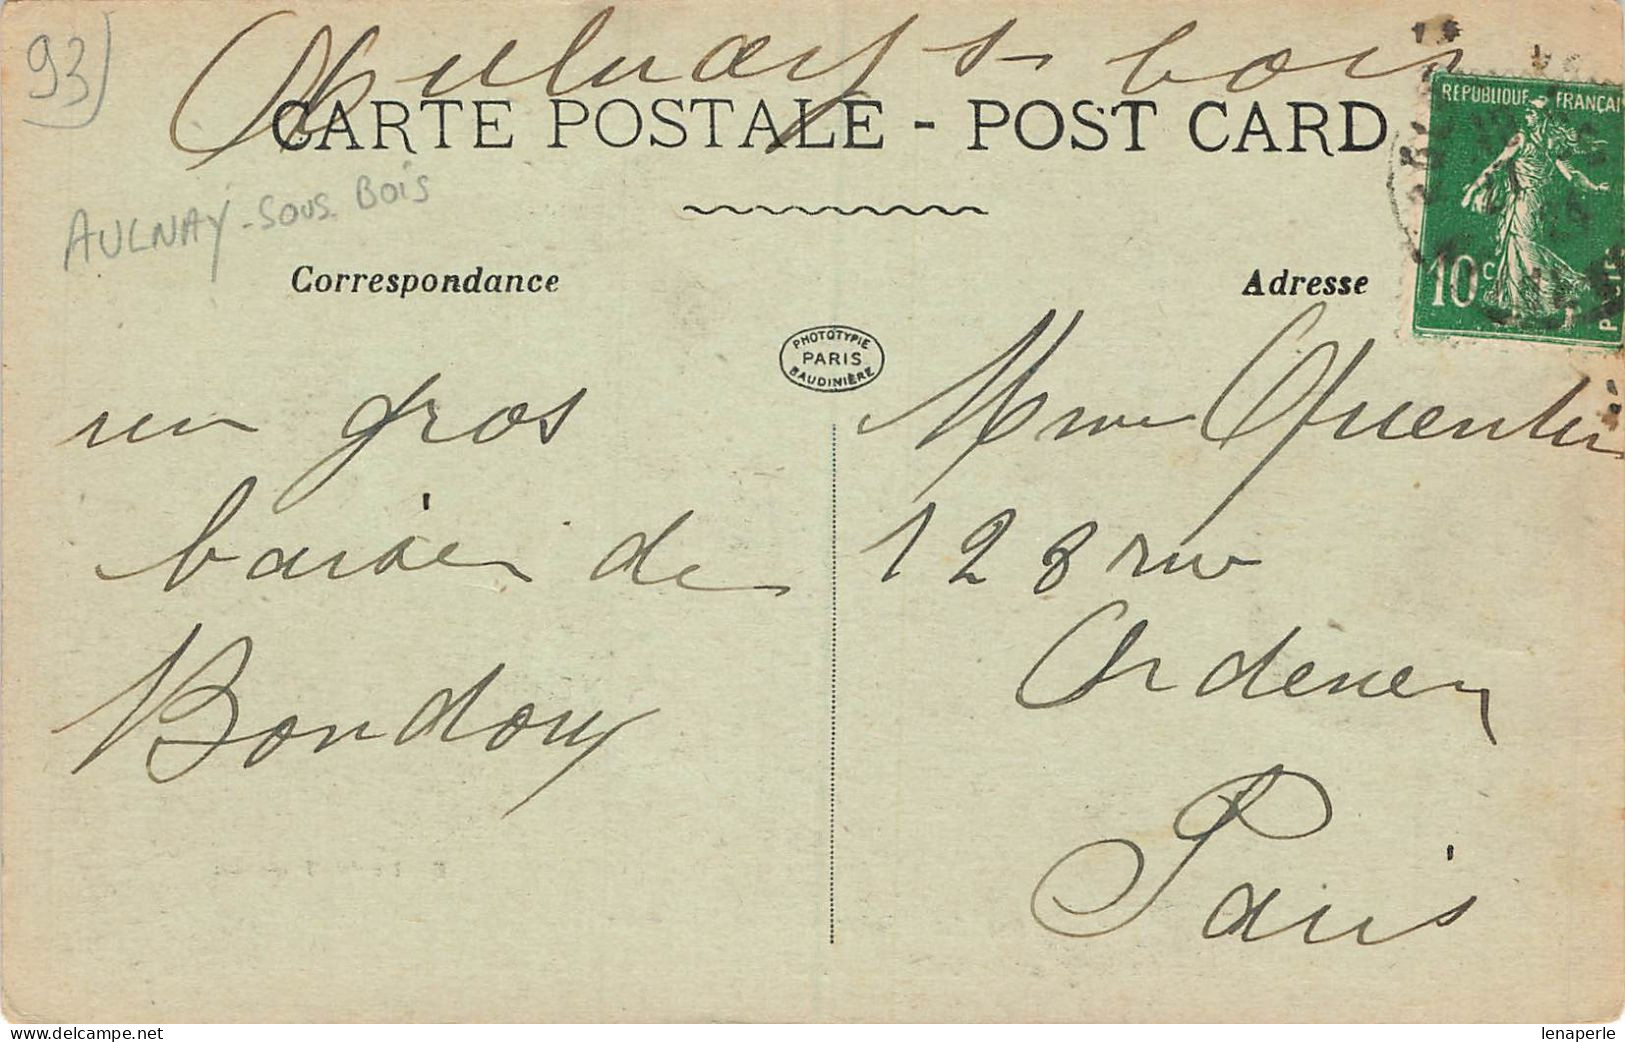 93)
Aulnay s bois
CARTE POSTALE - POST CARD
AULNAY-SOUS BOIS
Correspondance
Adresse
REPUBLIQUE FRANÇAI
10 c
PHOTOTYPIE
PARIS
BAUDINIÈRE
un gros
baiser de
Bondoux
Mme Quentin
128 rue
Ordener
Paris
delcampe.net
lenaperle